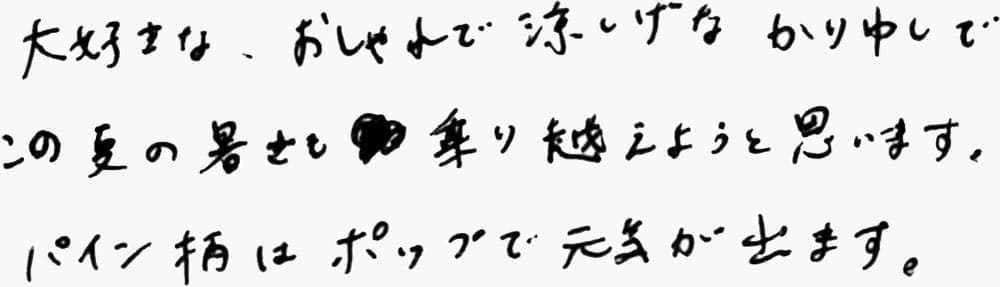 大好きな、おしゃれで涼しげなかりゆしで
この夏の暑さも乗り越えようと思います。
パイン柄はポップで元気が出ます。